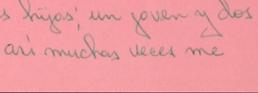 s hijos; un joven y dos
así muchas veces me